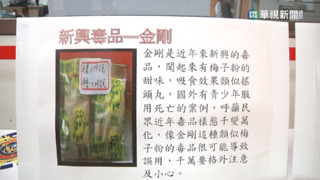 華視新聞
新興毒品—金剛
金剛是近年來新興的毒
品，聞起來有梅子粉的
甜味，吸食效果類似搖
頭丸，國外有青少年服
用死亡的案例，呼籲民
眾近年毒品樣態千變萬
化，像金剛這種類似梅
子粉的毒品很可能導致
誤用，千萬要格外注意
及小心。